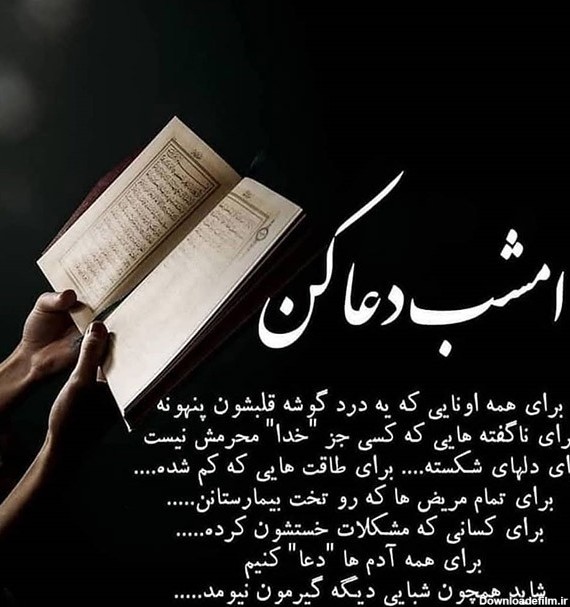 امشب دعا کن
برای همه اونایی که یه درد گوشه قلبشون پنهونه
رای ناگفته هایی که کسی جز "خدا" محرمش نیست
ای دلهای شکسته.... برای طاقت هایی که کم شده....
برای تمام مریض ها که رو تخت بیمارستانن.....
برای کسانی که مشکلات خستشون کرده.....
برای همه آدم ها "دعا" کنیم
شاید همچون شبایی دیگه گیرمون نیومد.....
Downloadefilm.ir